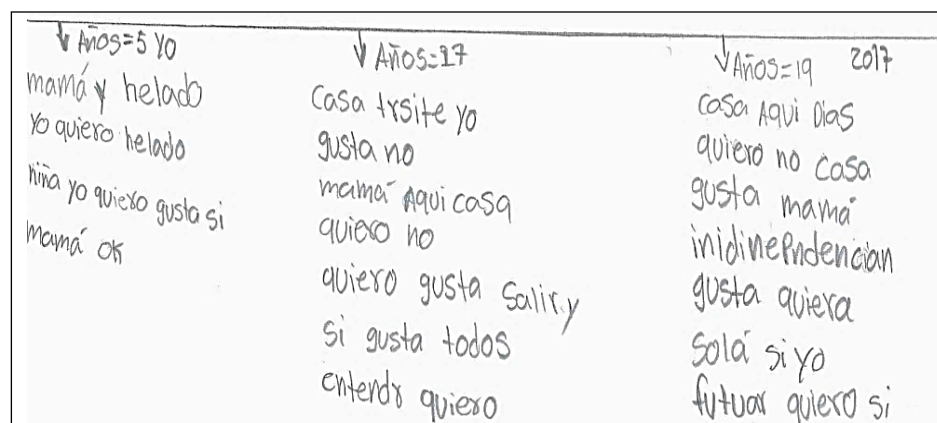 Años=5 yo
mamá y helado
yo quiero helado
niña yo quiero gusta si
mamá ok
Años=17
Casa trsite yo
gusta no
mamá Aqui casa
quiero no
quiero gusta Salir y
si gusta todos
entendr quiero
Años=19 2017
casa Aqui Dias
quiero no casa
gusta mamá
inidinepndencian
gusta quiera
Solá si yo
futuar quiero si